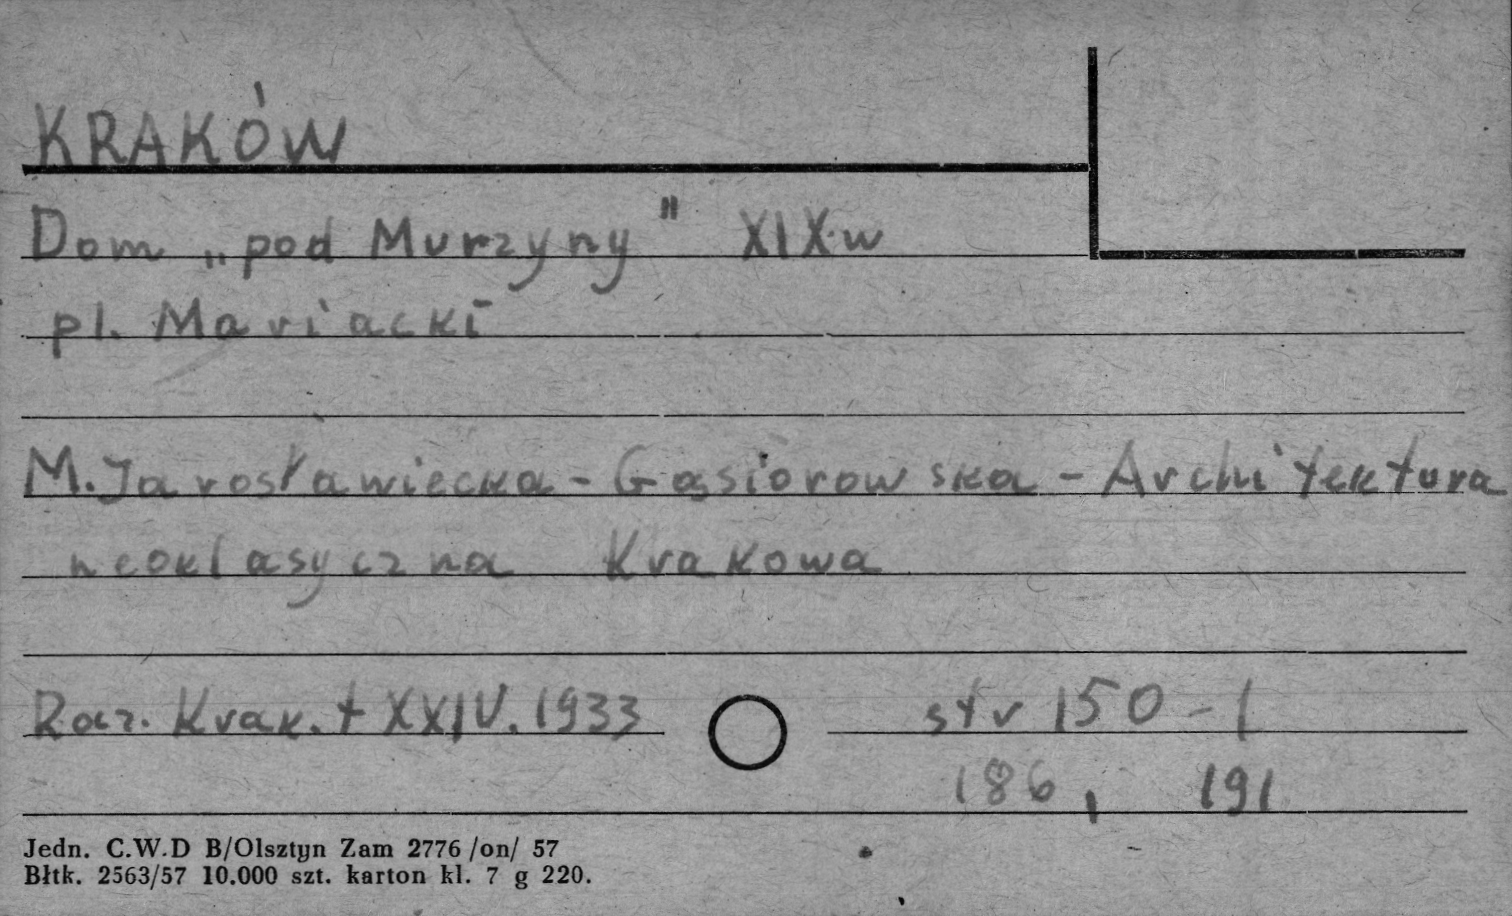 KRAKÓW
Dom „pod Murzyny" XIX.w
pl. Mariacki
M. Jarosławiecka - Gąsiorowska - Architektura
neoklasyczna Krakowa
Rocz. Krak. t XXIV. 1933 str 150-1
186, 191
Jedn. C.W.D B/Olsztyn Zam 2776 /on/ 57
Błtk. 2563/57 10.000 szt. karton kl. 7 g 220.